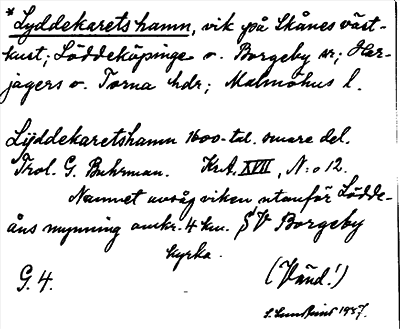 *Lyddekaretshamn, vik på Skånes väst-
kust; Löddeköpinge o. Borgeby sr; Har-
jagers o. Torna hdr; Malmöhus l.
Lÿddekaretshamn 1600-tal. senare del.
Trol. G. Buhrman. KrA. XVII, N:o 12.
Namnet avsåg viken utanför Lödde-
åns mynning omkr. 4 km. SV Borgeby
kyrka.
G. 4. (Vänd!)
1937.